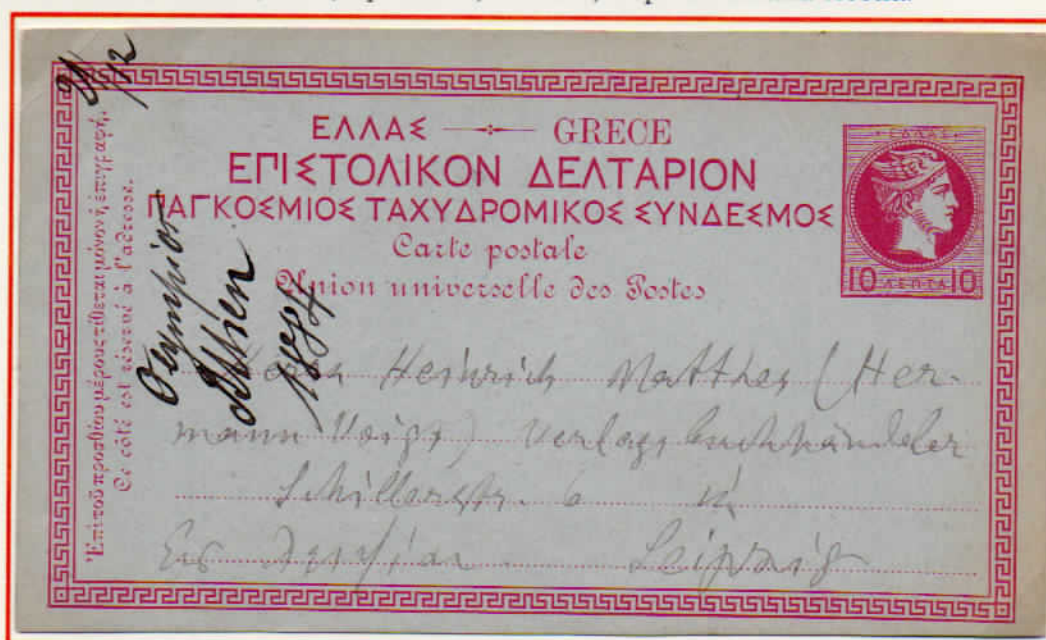 ΕΛΛΑΣ GRECE
ΕΠΙΣΤΟΛΙΚΟΝ ΔΕΛΤΑΡΙΟΝ
ΠΑΓΚΟΣΜΙΟΣ ΤΑΧΥΔΡΟΜΙΚΟΣ ΣΥΝΔΕΣΜΟΣ
Carte postale
Union universelle des Postes
ΕΛΛΑΣ
10 ΛΕΠΤΑ 10
Ἐπὶ τοῦ προσθίου μέρους τίθεται μόνον ἡ ἐπιγραφή.
Ce côté est réservé à l'adresse.
21/12
Athen
Heinrich Matthes (Her-
mann Voigt) Verlagsbuchhändler
Schillerstr. 6
Leipzig